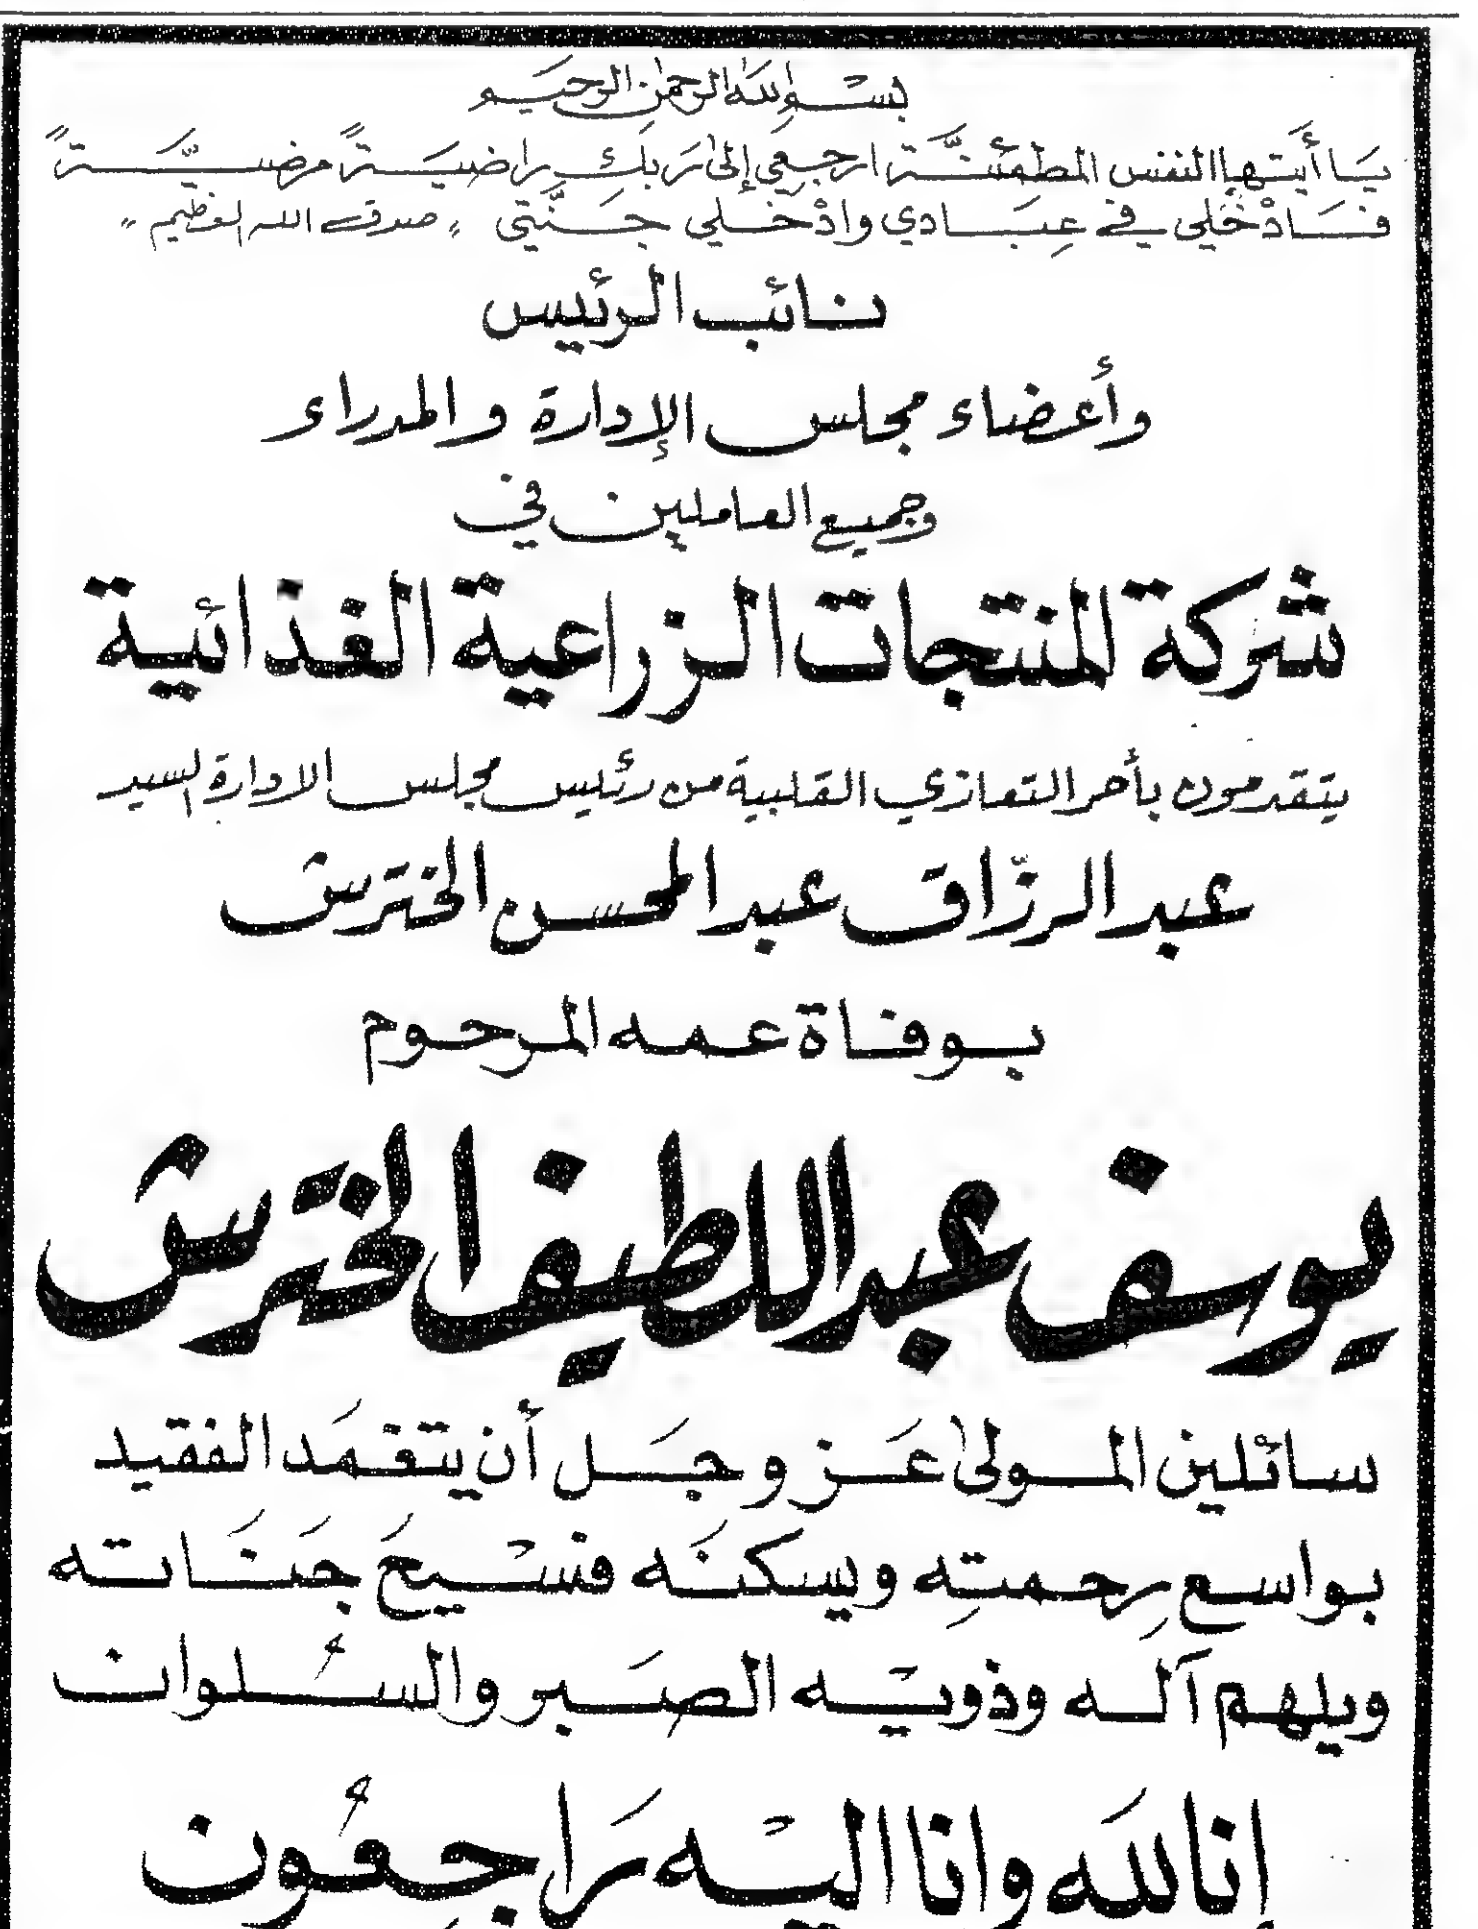 بسم الله الرحمن الرحيم
يَا أيتها النفس المطمئنَّة ارجعي إلىٰ رَبكِ راضيَةً مرضيَّةً
فَادْخُلي في عِبَادي وادْخلي جَنَّتي " صدق الله العظيم "
نائب الرئيس
وأعضاء مجلس الإدارة والمدراء
وجميع العاملين في
شركة المنتجات الزراعية الغذائية
يتقدمون بأحر التعازي القلبية من رئيس مجلس الادارة السيد
عبد الرزّاق عبد المحسن الخترش
بوفاة عمه المرحوم
يوسف عبد اللطيف الخترش
سائلين المولىٰ عَز وجَل أن يتغمَد الفقيد
بواسع رِحمتِه ويسكنَه فسْيحَ جَنَاته
ويلهم آله وذويْه الصَبر والسُلوان
إنا للَه وانا اليْه رَاجِعُون